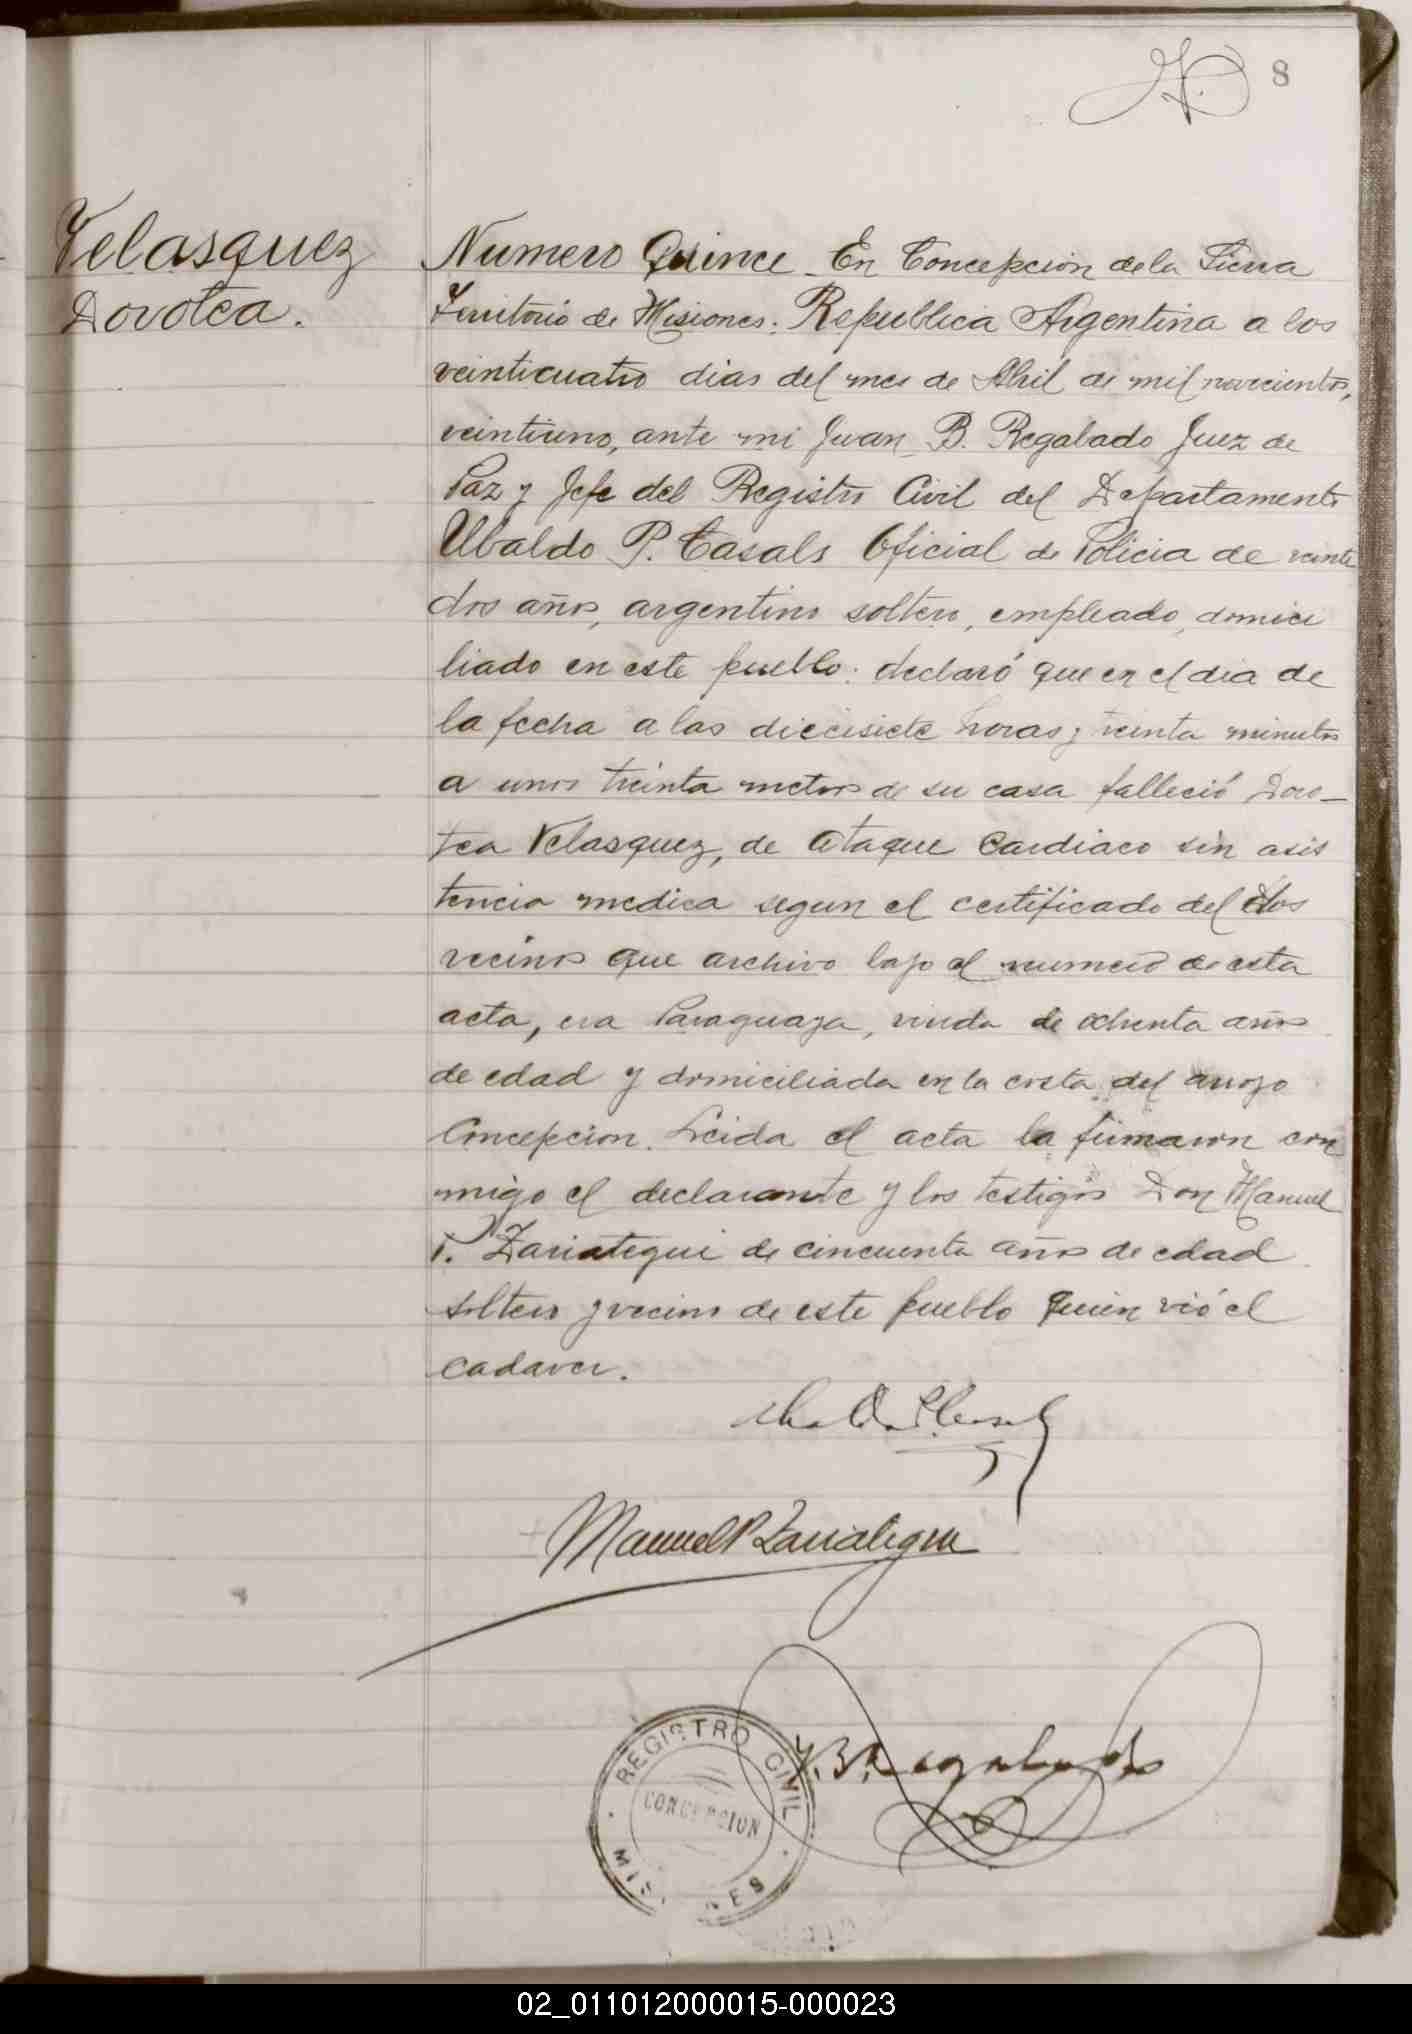 8
Velasquez
Dorotea.
Numero Quince_ En Concepcion de la Sierra
Territorio de Misiones. Republica Argentina a los
veinticuatro dias del mes de Abril de mil novecientos,
veintiuno, ante mi Juan B. Regalado Juez de
Paz y Jefe del Registro Civil del Departamento
Ubaldo P. Casals Oficial de Policia de veinte
dos años, argentino soltero, empleado, domici
liado en este pueblo: declaró que en el dia de
la fecha a las diecisiete horas y treinta minutos
a unos treinta metros de su casa falleció Doro-
tea Velasquez, de ataque Cardiaco sin asis
tencia medica segun el certificado del dos
vecinos que archivo bajo el numero de esta
acta, era Paraguaya, viuda de ochenta años
de edad y domiciliada en la costa del arroyo
Concepcion. Leida el acta la firmaron con
migo el declarante y los testigos Don Manuel
P. Zariategui de cincuenta años de edad
soltero y vecino de este pueblo quien vió el
cadaver.
Ubaldo P. Casals
Manuel P Zariategui
J. B. Regalado
REGISTRO CIVIL
CONCEPCION
MISIONES
02_011012000015-000023